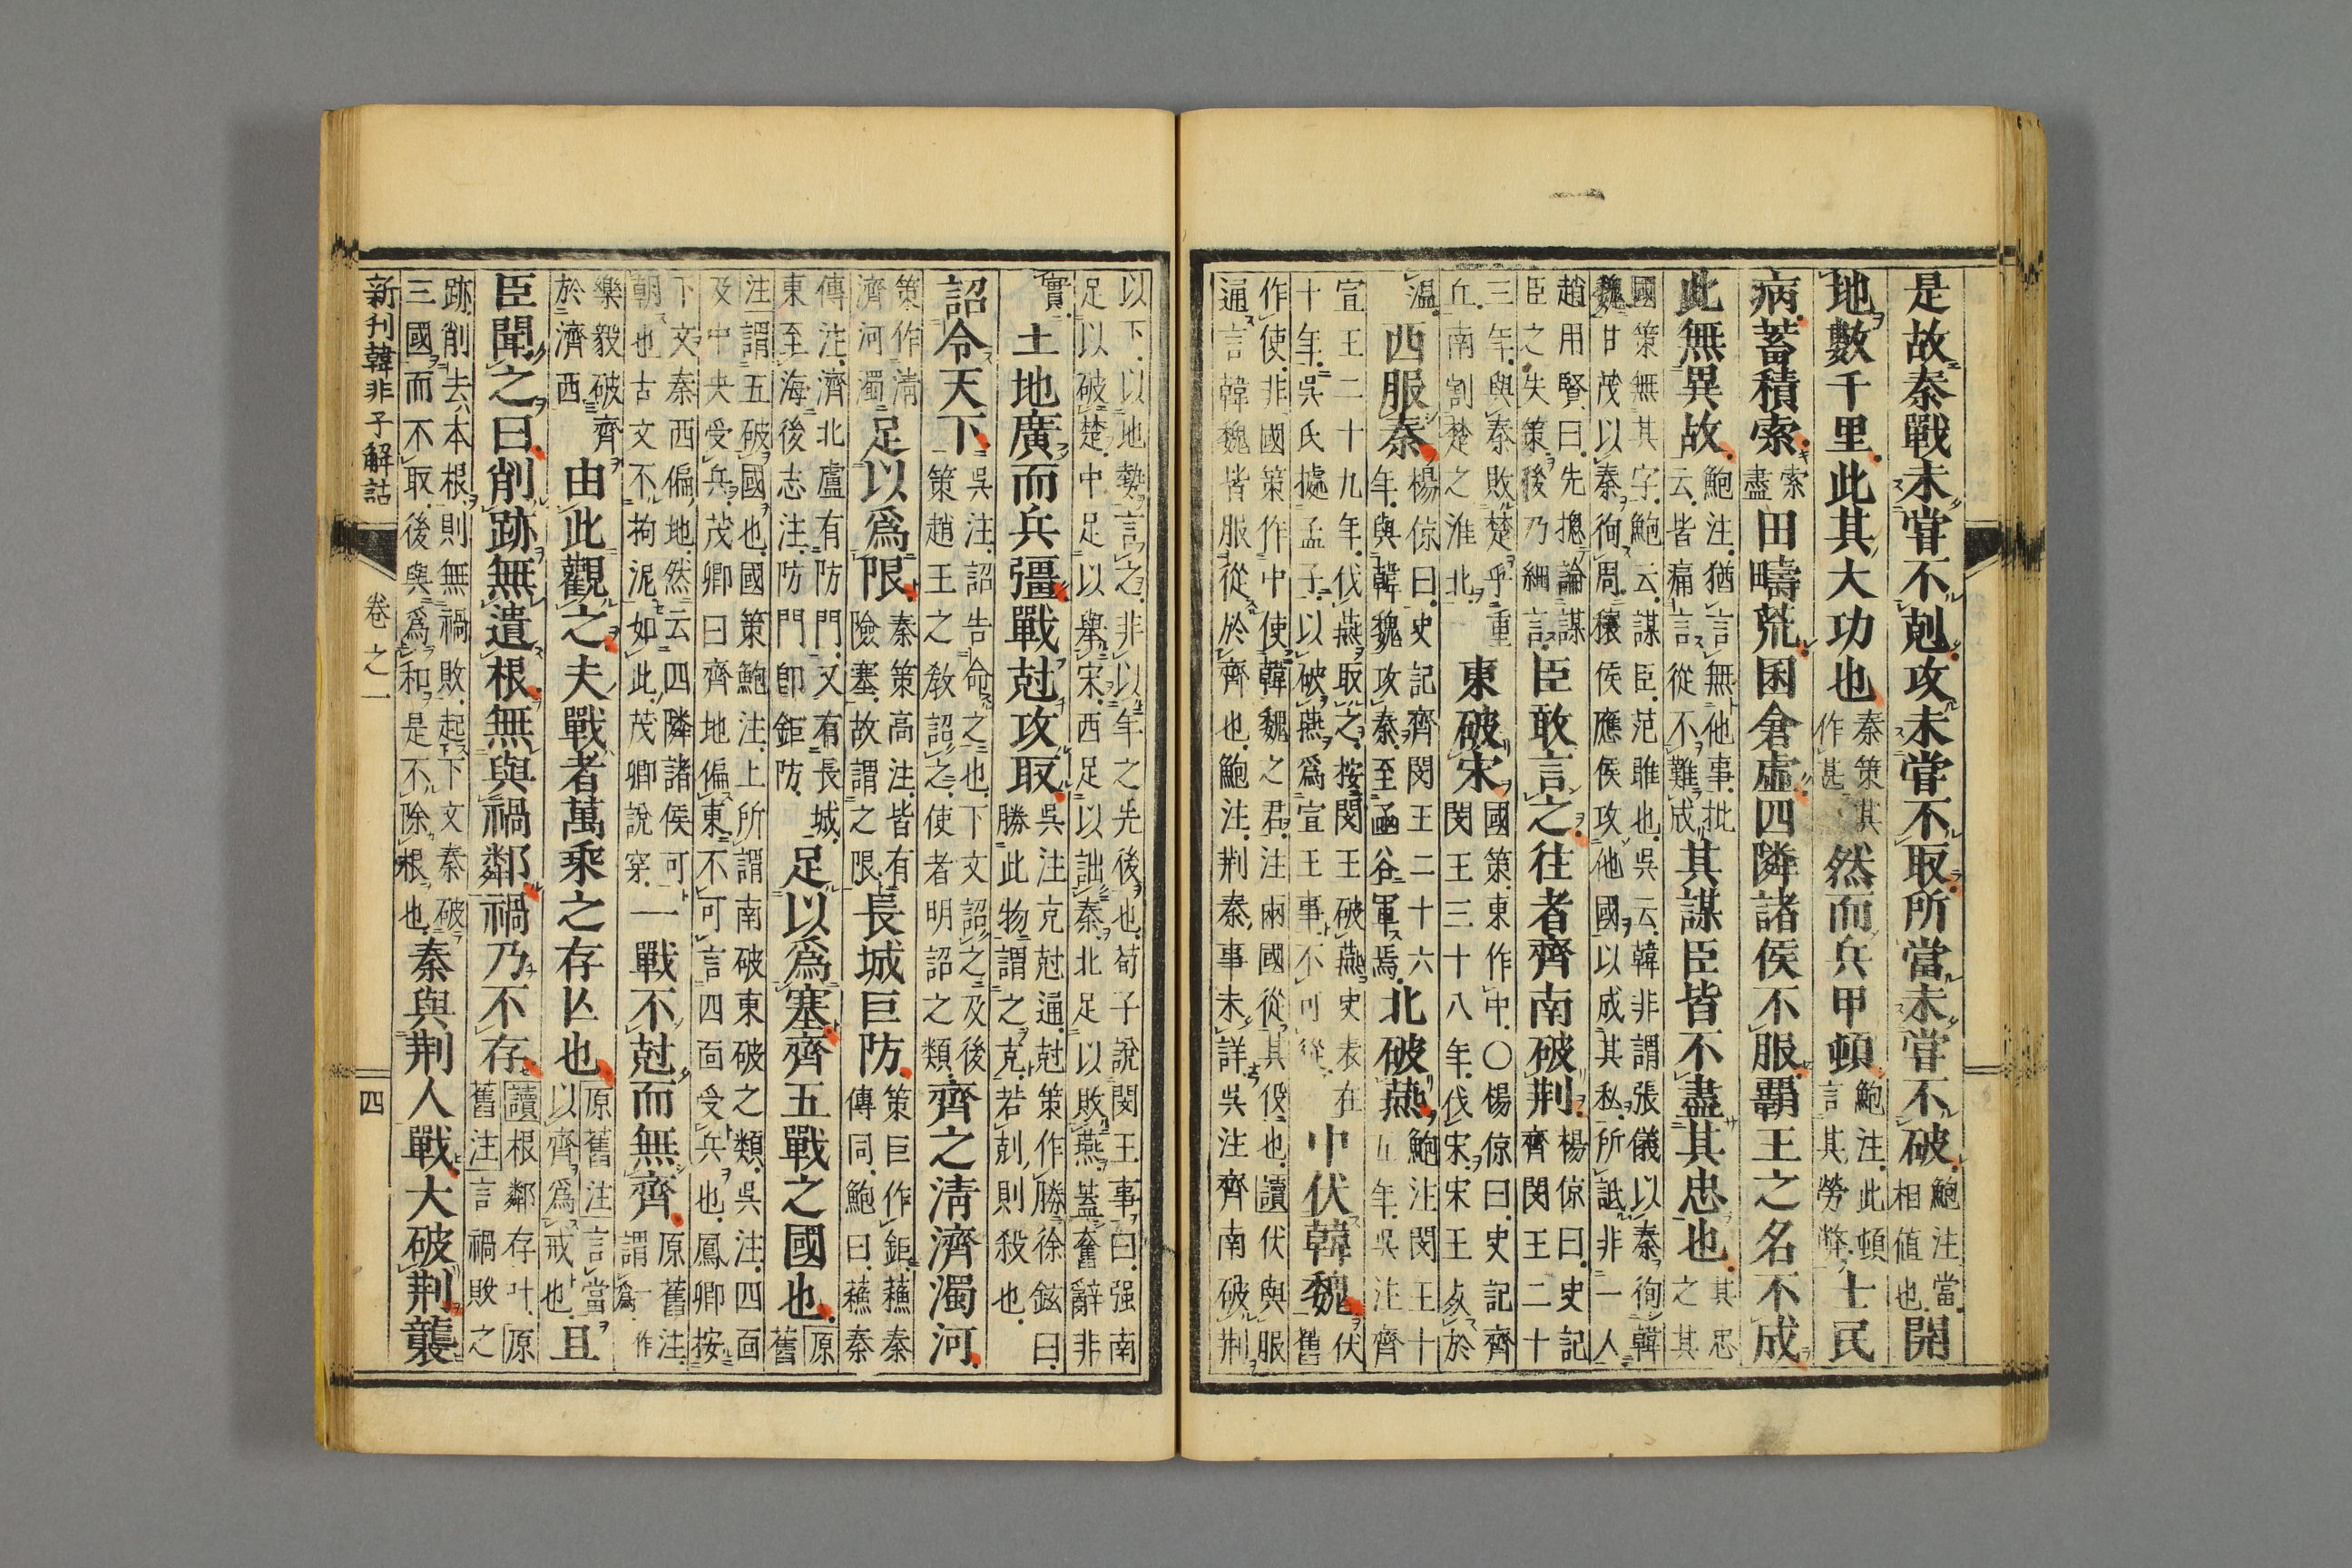 是故秦戰未嘗不剋攻未嘗不取所當未嘗不破鮑注當相値也開
地數千里此其大功也秦策其作甚然而兵甲頓鮑注此頓言其勞弊士民
病蓄積索索盡田疇荒囷倉虛四隣諸侯不服霸王之名不成
此無異故鮑注猶言無他事批云皆痛言從不難成其謀臣皆不盡其忠也其忠之其
國策無其字鮑云謀臣范雎也吳云韓非謂張儀以秦徇韓
魏甘茂以秦徇周穰侯應侯攻他國以成其私所詆非一人
趙用賢曰先揔論謀臣之失策後乃細言臣敢言之往者齊南破荆楊倞曰史記齊閔王二十
三年與秦敗楚乎重丘南割楚之淮北東破宋國策東作中○楊倞曰史記齊閔王三十八年伐宋宋王於
温西服秦楊倞曰史記齊閔王二十六年與韓魏攻秦至凾谷軍焉北破燕鮑注閔王十五年吳注齊
宣王二十九年伐燕取之按閔王破燕史表在十年吳氏據孟子以破燕爲宣王事不可從中伏韓魏伏舊
作使非國策作中使韓魏之君注兩國從其伇也讀伏與服
通言韓魏皆服從於齊也鮑注荆秦事未詳吳注齊南破荆
以下以地勢言之非以年之先後也荀子說閔王事曰强南
足以破楚中足以舉宋西足以詘秦北足以敗燕蓋奮辭非
實土地廣而兵彊戰尅攻取吳注克尅通尅策作勝徐鉉曰勝此物謂之克若剋則殺也
詔令天下吳注詔告命之也下文詔之及後策趙王之敎詔之使者明詔之類齊之淸濟濁河
策作淸濟河濁足以爲限秦策高注皆有險塞故謂之限長城巨防策巨作鉅蘇秦傳同鮑曰蘇秦
傳注濟北盧有防門又有長城東至海後志注防門卽鉅防足以爲塞齊五戰之國也原舊
注謂五破國也國策鮑注上所謂南破東破之類吳注四面
及中央受兵茂卿曰齊地偏東不可言四面受兵也鳳卿按
下文秦西偏地然云四隣諸侯可朝也古文不拘泥如此茂卿說穿一戰不尅而無齊原舊注謂一作爲
樂毅破齊於濟西由此觀之夫戰者萬乘之存亾也原舊注言當以齊爲戒也且
臣聞之曰削跡無遺根無與禍鄰禍乃不存讀根鄰存叶原舊注言禍敗之
跡削去本根則無禍敗起下文秦破三國而不取後與爲和是不除根也秦與荆人戰大破荆襲
新刊韓非子解詁 卷之一 四